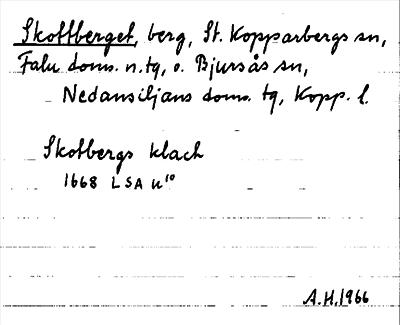 Skottberget, berg, St. Kopparbergs sn,
Falu doms. n.tg, o. Bjursås sn,
Nedansiljans doms. tg, Kopp. l.
Skotbergs klach
1668 LSA u¹⁰
A.H. 1966